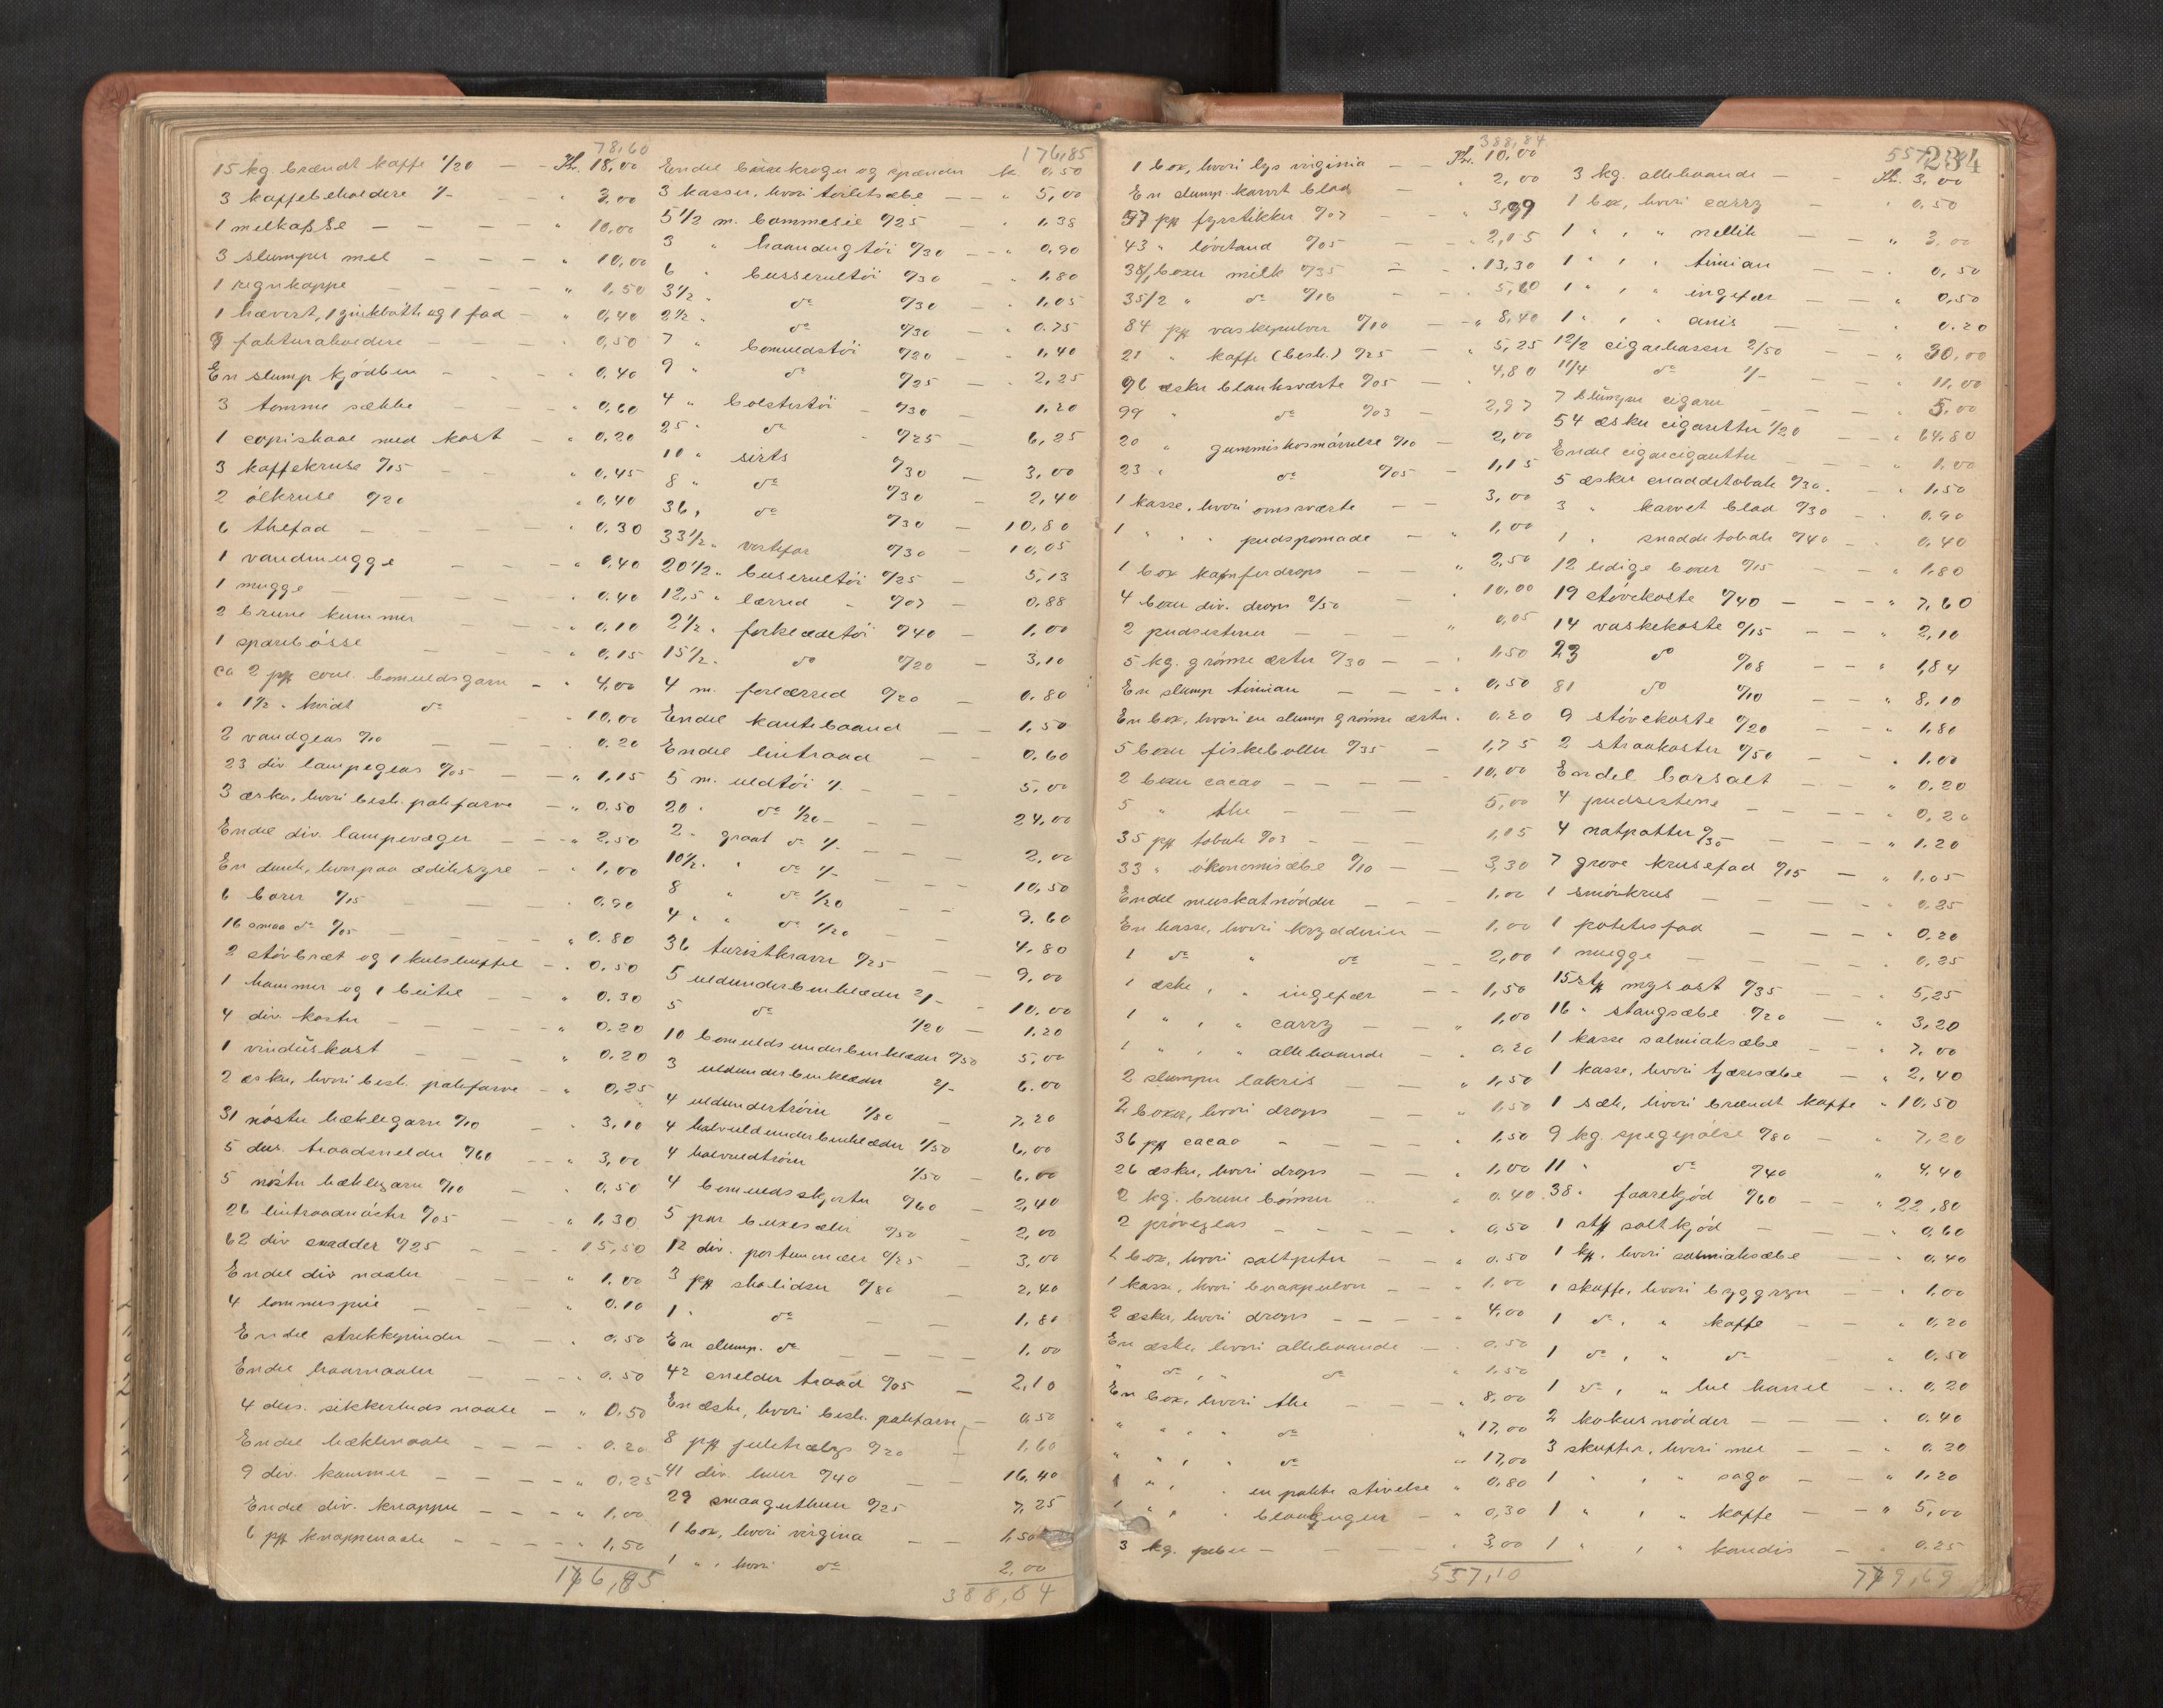 78,60
15 kg. brændt kaffe 1/20 — Kr. 18,00
3 kaffebeholdere 1/- — " 3,00
1 melkasse — " 10,00
3 slumper mel — " 10,00
1 regnkappe — " 1,50
1 hævert, 1 zinkbøtte og 1 fad — " 0,40
9 fakturaholdere — " 0,50
En slump kjödben — " 0,40
3 tomme sække — " 0,60
1 copiskaal med kost — " 0,20
3 kaffekruse %15 — " 0,45
2 ölkruse %20 " 0,40
6 thefad — " 0,30
1 vandmugge — " 0,40
1 mugge — " 0.40
2 brune kummer " 0,10
1 sparebösse " 0,15
ca 2 pk coul. bomuldsgarn — " 4,00
" 1 1/2 " hvidt do " 10,00
2 vandglas %10 — " 0.20
23 div lampeglas %05 — " 1,15
3 æsker, hvori besk. pakfarve — " 0.50
Endel div. lampevæger — " 2,50
En dunk, hvorpaa eddiksyre — " 1,00
6 boxer %15 — 0.90
16 smaa do %05 — " 0.80
2 støvbræt og 1 kulskuffel — " 0,50
1 hammer og 1 beitel — " 0.30
4 div. koster — " 0.20
1 vinduskost — " 0.20
2 æsker, hvori besk. pakfarve — " 0,25
31 nöster hæklegarn %10 " 3,10
5 dus. traadsneller %60 — " 3,00
5 nöster hæklegarn %10 — " 0,50
26 lintraadnöster %05 — " 1,30
62 div snadder %25 — 15,50
Endel div naaler — " 1,00
4 lommespeil — " 0.10
Endel strikkepinder — " 0,50
Endel haarnaaler — " 0.50
4 dus. sikkerhedsnaale — " 0.50
Endel hæklenaale — " 0.20
9 div. kammer — " 0.25
Endel div. knapper — " 1,00
6 pk knappenaale — " 1,50
176,85
176,85
Endel buxekroger og spænder kr 0,50
3 kasser, hvori toiletsæbe — " 5,00
5 1/2 m. bommesie %25 " 1,38
3 " haandugtöi %30 — " 0,90
6 " busserultöi %30 " 1,80
3 1/2 " do %30 — " 1,05
2 1/2 " do %30 — " 0.75
7 " bomuldstöi %20 — " 1,40
9 " do %25 — " 2,25
4 " bolstertöi — %30 — 1,20
25 " do " %25 — 6,25
10 " sirts %30 3,00
8 " do %30 — 2,40
36 " do %30 — 10,80
33 1/2 " vertefor %30 — 10,05
20 1/2 " buserultöi %25 — 5,13
12,5 " lærred — %07 — 0,88
2 1/2 " forklædetöi %40 — 1,00
15 1/2 " do %20 — 3,10
4 m. forlærred %20 — 0.80
Endel kantebaand — 1,50
Endel lintraad — 0,60
5 m. uldtöi 1/- — 5,00
20 " do 1/20 — 24,00
2 " graat do 1/- — 2,00
10 1/2 " " do 1/- — 10,50
8 " do 1/20 — 9.60
4 " " do 1/20 — 4.80
36 turistkraver %25 — 9,00
5 uldunderbenklæder 2/- — 10,00
5 do 1/20 — 1,20
10 bomuldsunderbenklæder %50 5,00
3 uldunderbenklæder 2/- 6.00
4 uldundertröier 1/80 — 7,20
4 halvuldunderbenklæder 1/50 6,00
4 halvuldtröier 1/50 — 6.00
4 bomuldsskjorter %60 — 2,40
5 par buxeseler %50 — 2,00
12 div. portemonæer %25 — 3,00
3 pk skolidser %80 — 2,40
1 " do — 1,80
En slump. do — 1.00
42 snelder traad %05 — 2,10
En æske, hvori besk. pakfarve — 0,50
8 pk juletrælys %20 — 1,60
41 div. luer %40 — 16,40
29 smaagutluer %25 7,25
1 box, hvori virgina — 1,50
1 " " hvori do 2,00
388,84
388,84
1 box, hvori lys virginia — Kr. 10,00
En slump karvet blad — " 2,00
57 pk fyrstikker %07 — " 3,99
43 " lövetand %05 — " 2,15
38/1 boxer milk %35 — " 13,30
35/2 " do %16 — " 5,60
84 pk vaskepulver %10 — " 8,40
21 " kaffe (besk.) %25 " 5,25
96 æsker blanksværte %05 — " 4,80
99 " do %03 — 2,97
20 " gummiskosmörelse %10 — 2,00
23 " do %05 — 1,15
1 kasse, hvori ovnsværte — 3,00
1 " " pudspomade — " 1,00
1 box kamferdrops — " 2,50
4 boxer div. drops 2/50 — " 10,00
2 pudsestener — " 0,05
5 kg. grönne erter %30 — " 1,50
En slump timian — " 0,50
En box, hvori en slump grönne erter " 0.20
5 boxer fiskeboller %35 — 1,75
2 boxer cacao — 10,00
5 " the — 5,00
35 pk tobak %03 — 1,05
33 " ökonomisæbe %10 — 3,30
Endel muskatnödder — 1,00
En kasse, hvori krydderier — 1,00
1 do " do — 2,00
1 æske, " ingefær — 1,50
1 " , " carry — " 1,00
1 " , " allehaande — " 0.20
2 slumper lakris — " 1,50
2 boxer, hvori drops — " 1,50
36 pk cacao — " 1,50
26 æsker, hvori drops — " 1,00
2 kg. brune bönner " 0.40
2 pröveglas — " 0,50
1 box, hvori saltpeter — " 0.50
1 kasse, hvori boraxpulver — " 1,00
2 æsker, hvori drops — " 4,00
En æske, hvori allehaande — " 0,50
" do , " do " 1,50
En box, hvori the — " 8,00
" " , " do " 17,00
" " , " do " 17,00
1 " , " en pakke stivelse " 0,80
1 " , " blaakugler — " 0,30
3 kg. peber — " 3,00
557,10
234
3 kg. allehaande — Kr. 3,00
1 box, hvori carry — " 0.50
1 " , " nellik — " 3.00
1 " , " timian — " 0,50
1 " , " ingefær — " 0,50
1 " , " anis — " 0.20
12/2 cigarkasser 2/50 — " 30,00
11/4 do 1/- — " 11,00
7 slumper cigarer — " 5,00
54 æsker cigaretter 1/20 — " 64.80
Endel cigarcigaretter — " 1,00
5 æsker snaddetobak %30 — " 1,50
3 " karvet blad %30 — " 0,90
1 " snaddetobak %40 — " 0,40
12 ledige boxer %15 — " 1,80
19 stövekoste %40 — " 7,60
14 vaskekoste %15 — " 2,10
23 do %08 — " 1,84
81 do %10 — " 8,10
9 stövekoste %20 — " 1,80
2 straakoster %50 — " 1.00
Endel barsalt — " 0,20
4 pudsestene — " 0,20
4 natpotter %30 — " 1.20
7 grove krusefad %15 — " 1,05
1 smörkrus — 0,25
1 potetesfad — " 0.20
1 mugge — " 0,25
15 stk mysost %35 — " 5,25
16 " stangsæbe %20 — " 3,20
1 kasse salmiaksæbe — " 7,00
1 kasse, hvori tjæresæbe — " 2,40
1 sæk, hvori brændt kaffe " 10,50
9 kg. spegepölse %80 — " 7,20
11 " do %40 " 4.40
38 " faarekjöd %60 — " 22,80
1 stk saltkjöd — " 0,60
1 kp, hvori salmiaksæbe — " 0.40
1 skuffe, hvori byggryn — " 1,00
1 do , " kaffe — " 0,20
1 do , " do " 0,50
1 do , " hel kanel — " 0.20
2 kokusnödder — " 0.40
3 skuffer, hvori mel — " 0.20
1 " , " sago — " 1,20
1 " , " kaffe — " 5,00
1 " , " kandis — " 0.25
779,69